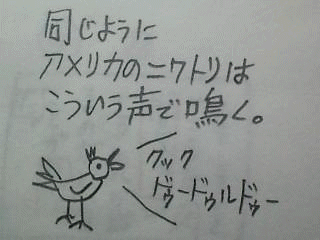 同じように
アメリカのニワトリは
こういう声で鳴く。
クック
ドゥードゥルドゥー